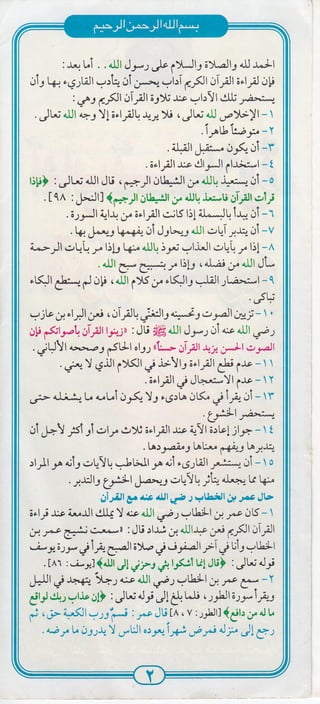 بسم الله الرحمن الرحيم
الحمد لله والصلاة والسلام على رسول الله . . أما بعد :
فإن لقراءة القرآن الكريم آداب يحسن أن يتأدب القارىء بها وأن
يستحضر تلك الآداب عند تلاوة القرآن الكريم وهي :
١- الإخلاص لله تعالى ، فلا يريد بالقراءة إلا وجه الله تعالى .
٢- متوضئاً طاهراً .
٣- أن يكون مستقبل القبلة .
٤- استخدام السواك عند القراءة .
٥- أن يستعيذ بالله من الشيطان الرجيم ، قال الله تعالى : ﴿فإذا
قرأت القرآن فاستعذ بالله من الشيطان الرجيم﴾ [النحل : ٩٨] .
٦- أن يبدأ بالبسملة إذا كانت القراءة من بداية السورة .
٧- أن يتدبر آيات الله ويحاول أن يفهمها ويعمل بها .
٨- إذا مر بآيات العذاب تعوذ بالله منها وإذا مر بآيات الرحمة
سأل الله من فضله ، وإذا مر بتسبيح سبح الله .
٩- استحضار القلب والبكاء من كلام الله ، فإن لم يستطع البكاء
تباكى .
١٠- تزيين الصوت وتحسينه والتغني بالقرآن ، فعن البراء بن عازب
رضي الله عنه أن رسول الله ﷺ قال : «زينوا القرآن بأصواتكم فإن
الصوت الحسن يزيد القرآن حسناً» رواه الحاكم وصححه الألباني .
١١- عدم قطع القراءة والأخذ في الكلام الذي لا يعني .
١٢- عدم الاستعجال في القراءة .
١٣- أن يقرأ في مكان هادىء ولا يكون أمامه ما يشغله حتى
يستحضر الخشوع .
١٤- جواز إعادة الآية عند القراءة ثلاث مرات أو أكثر لأجل أن
يتدبرها ويفهم معناها ومقصودها .
١٥- أن يستشعر القارىء أنه هو المخاطب بالآيات وأنه هو المراد
منها لما يجعله يتأثر بالآيات ويحصل الخشوع والتدبر .
حال عمر بن الخطاب رضي الله عنه مع القرآن
١- كان عمر بن الخطاب رضي الله عنه لا يملك الدمعة عند قراءة
القرآن الكريم فعن عبدالله بن شداد قال : «سمعت نشيج عمر بن
الخطاب وأنا في آخر الصفوف في صلاة الصبح يقرأ في سورة يوسف
قوله تعالى : ﴿قال إنما أشكو بثي وحزني إلى الله﴾ [يوسف : ٨٦] .
٢- سمع عمر بن الخطاب رضي الله عنه رجلاً يتهجد في الليل
ويقرأ سورة الطور ، فلما بلغ إلى قوله تعالى : ﴿إن عذاب ربك لواقع
ما له من دافع﴾ [الطور : ٧ ، ٨] قال عمر : قسم ورب الكعبة حق ، ثم
رجع إلى منزله فمرض شهراً يعوده الناس لا يدرون ما مرضه .
٢